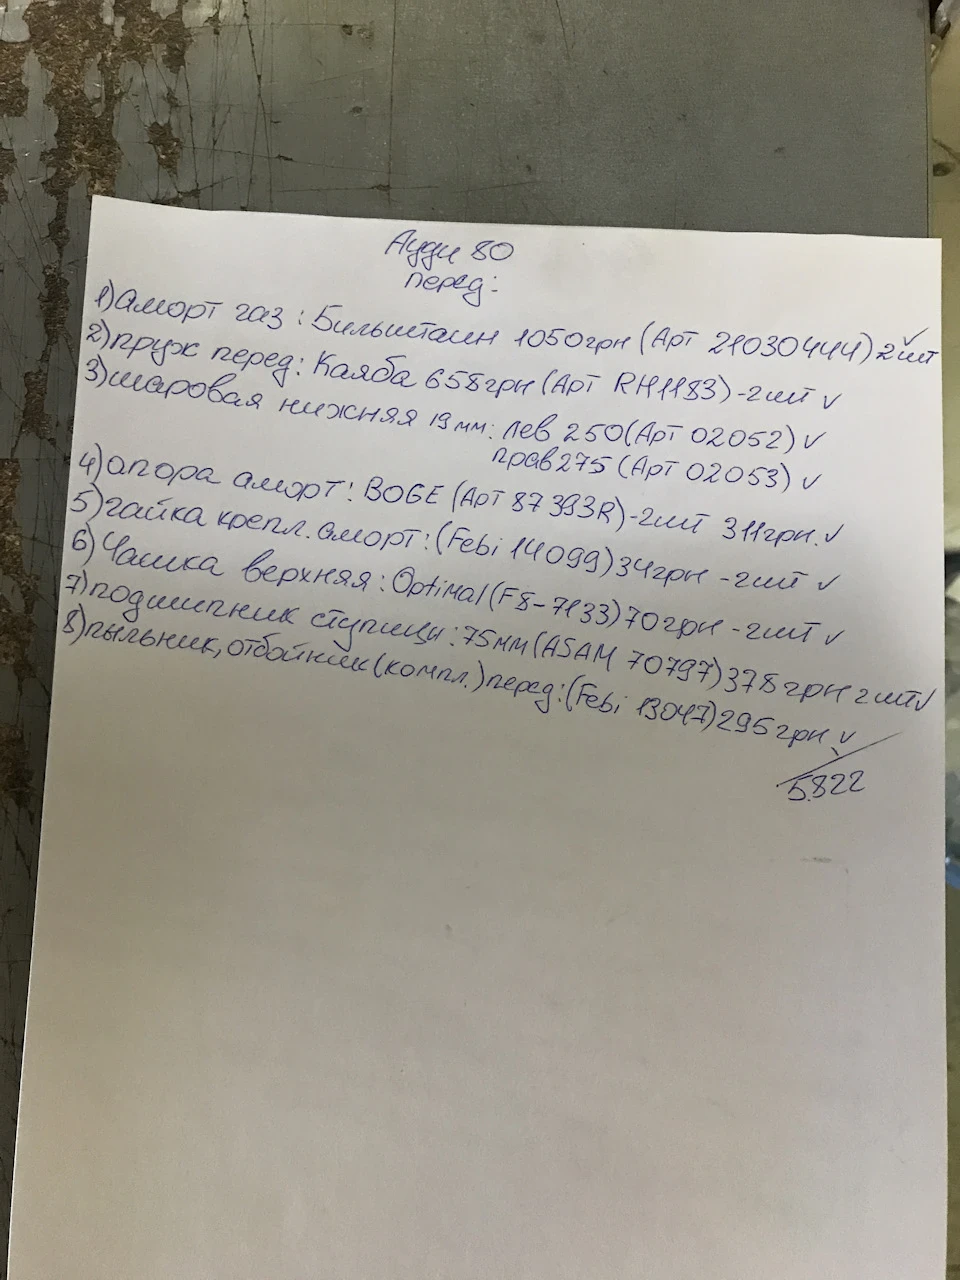 Ауди 80
перед:
1) аморт газ : Бильштаин 1050грн (Арт 21030444) 2шт ✓
2) пруж перед: Каяба 658грн (Арт RH1183) - 2шт ✓
3) шаровая нижняя 19 мм: лев 250 (Арт 02052) ✓
прав 275 (Арт 02053) ✓
4) опора аморт: BOGE (Арт 87 393R) - 2шт 311грн. ✓
5) гайка крепл. аморт: (Febi 14099) 34грн - 2шт ✓
6) Чашка верхняя: Optimal (F8-7133) 70грн - 2шт ✓
7) подшипник ступицы: 75мм (ASAM 70797) 378грн 2шт ✓
8) пыльник, отбойник (компл.) перед: (Febi 13047) 295грн ✓
5822